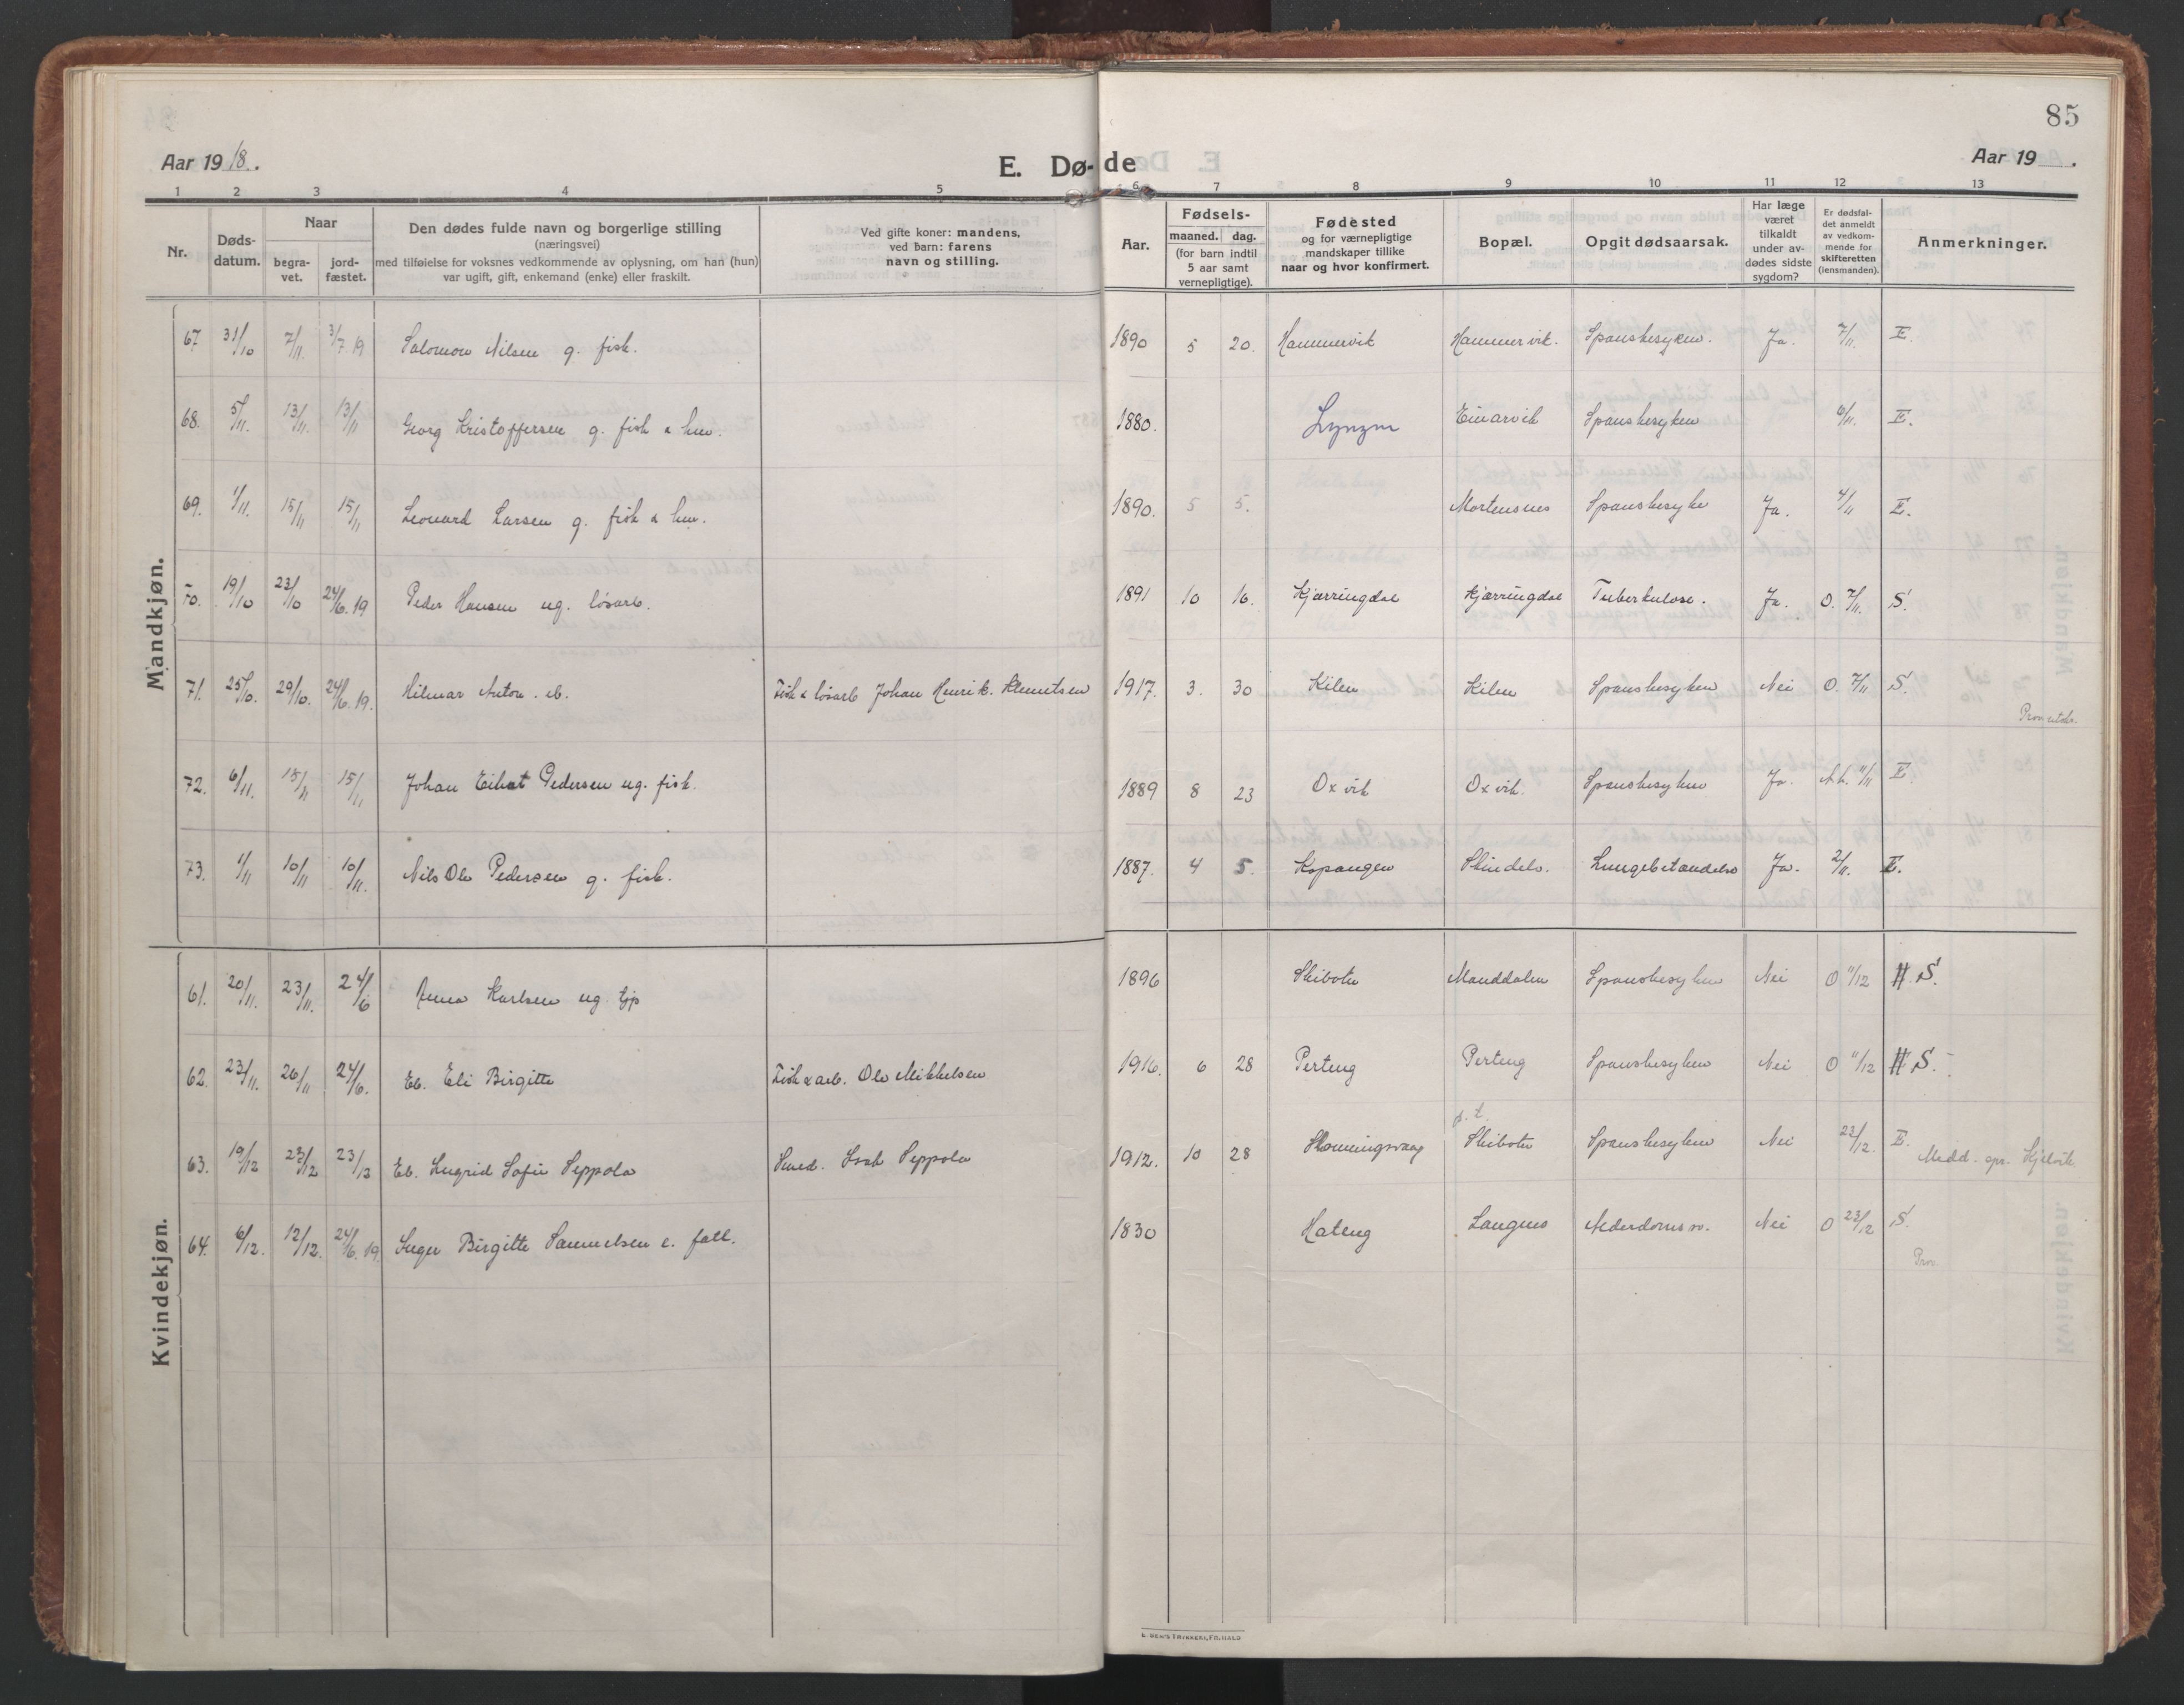 85
Aar 1918.
E. Dø-de
Aar 19 .
1 2 3 4 5 6 7 8 9 10 11 12 13
Nr.
Døds-
datum.
Naar
begra-
vet.
jord-
fæstet.
Den dødes fulde navn og borgerlige stilling
(næringsvei)
med tilføielse for voksnes vedkommende av oplysning, om han (hun)
var ugift, gift, enkemand (enke) eller fraskilt.
Ved gifte koner: mandens,
ved barn: farens
navn og stilling.
Aar.
Fødsels-
maaned. dag.
(for barn indtil
5 aar samt
vernepligtige).
Fødested
og for værnepligtige
mandskaper tillike
naar og hvor konfirmert.
Bopæl.
Opgit dødsaarsak.
Har læge
været
tilkaldt
under av-
dødes sidste
sygdom?
Er dødsfal-
det anmeldt
av vedkom-
mende for
skifteretten
(lensmanden).
Anmerkninger.
Mandkjøn.
67. 31/10 7/11. 3/7 19 Salomon Nilsen g. fisk. 1890 5 20. Hammervik Hammervik. Spanskesyken. Ja. 7/11. E.
68. 5/11. 13/11. 13/11 Georg Kristoffersen g. fisk & hm. 1880. Lyngen Einarvik Spanskesyken 6/11. E.
69. 1/11. 15/11 15/11 Leonard Larsen g. fisk & hm. 1890. 5 5. Mortensnes Spanskesyke Ja. 4/11 E.
70. 19/10 23/10 24/6. 19 Peder Hansen ug. løsarb. 1891 10 16. Kjærringdal Kjærringdal Tuberkulose. Ja. O. 7/11. S.
71. 25/10. 29/10. 24/6. 19. Hilmar Anton. eb. Fisk & løsarb Johan Henrik. Klemitsen 1917. 3. 30 Kilen Kilen Spanskesyken Nei O. 7/11 S.
72. 6/11. 15/11 15/11 Johan Eihat Pedersen ug. fisk. 1889 8 23 Oxvik Oxvik. Spanskesyken Ja. 11/11 E.
73. 1/11 10/11 10/11. Nils Ole Pedersen g. fisk. 1887. 4 5. Kopangen Skindelv. Lungebetændelse Ja. 2/11. E.
Kvindekjøn.
61. 20/11. 23/11. 24/6 Anna Karlsen ug. tjp 1896 Skibotn Manddalen Spanskesyken Nei O 11/12 S.
62. 23/11. 26/11 24/6. Eb. Eli Birgitte Fisk & arb. Ole Mikkelsen 1916. 6 28 Perteng Perteng Spanskesyken Nei O 11/12 S.
63. 19/12 23/12 23/12 Eb. Ingrid Sofie Seppola Smed. Isak Seppola 1912. 10 28 Honningsvaag p. t. Skibotn Spanskesyken Nei 23/12. E. Medd. spr. Kjelvik.
64. 6/12. 12/12. 24/6. 19 Inger Birgitte Samuelsen e. fatt. 1830 Hateng Langnes Alderdomssv. Nei O 23/12 S.
E. SEM'S TRYKKERI, FR.HALD